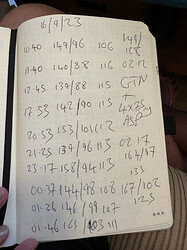 16/9/23
10:40 149/96 106 149/
128
11:40 140/88 116 02:12
12:45 139/88 115 GTN
17:53 142/90 115 4x75
ASP
20:53 153/101 112
21:25 139/96 113 02:17
23:17 158/94 113 164/97
133
00:37 144/98 108 167/102
01:26 146/99 107 125
01:46 163/103 111